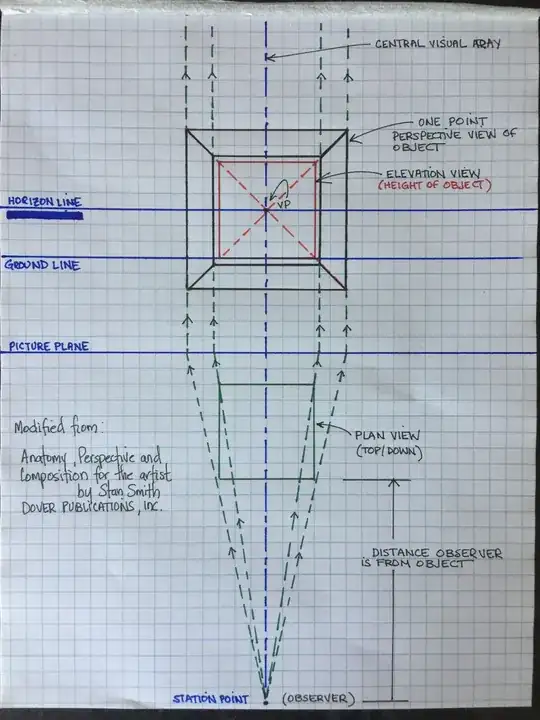 CENTRAL VISUAL ARAY
ONE POINT
PERSPECTIVE VIEW OF
OBJECT
ELEVATION VIEW
(HEIGHT OF OBJECT)
VP
HORIZON LINE
GROUND LINE
PICTURE PLANE
Modified from:
Anatomy, Perspective and
Composition for the artist
by Stan Smith
DOVER PUBLICATIONS, INC.
PLAN VIEW
(TOP/DOWN)
DISTANCE OBSERVER
IS FROM OBJECT
STATION POINT (OBSERVER)